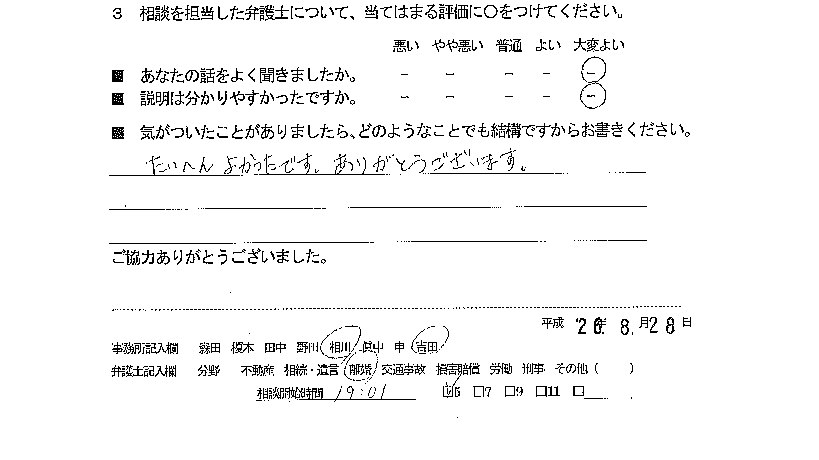 3 相談を担当した弁護士について、当てはまる評価に○をつけてください。
悪い やや悪い 普通 よい 大変よい
■ あなたの話をよく聞きましたか。 － － － － －
■ 説明は分かりやすかったですか。 － － － － －
■ 気がついたことがありましたら、どのようなことでも結構ですからお書きください。
たいへん よかったです。ありがとうございます。
ご協力ありがとうございました。
平成 26年 8月28日
事務所記入欄 森田 榎本 田中 野田 相川 田中 申 吉田
弁護士記入欄 分野 不動産 相続・遺言 離婚 交通事故 損害賠償 労働 刑事 その他（ ）
相談開始時間 19:01 □5 □7 □9 □11 □